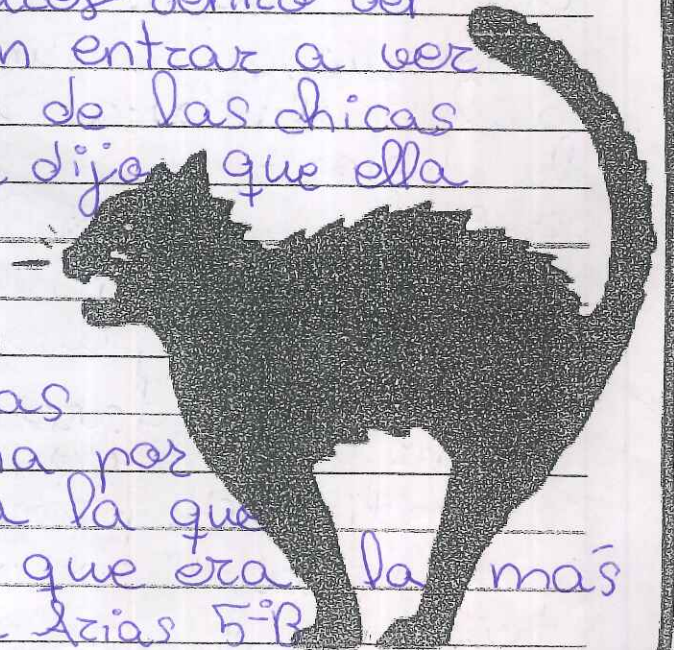 n entrar a ver
de las chicas
dijo que ella
as
a por
a la que
que era la más
Arias 5ºB